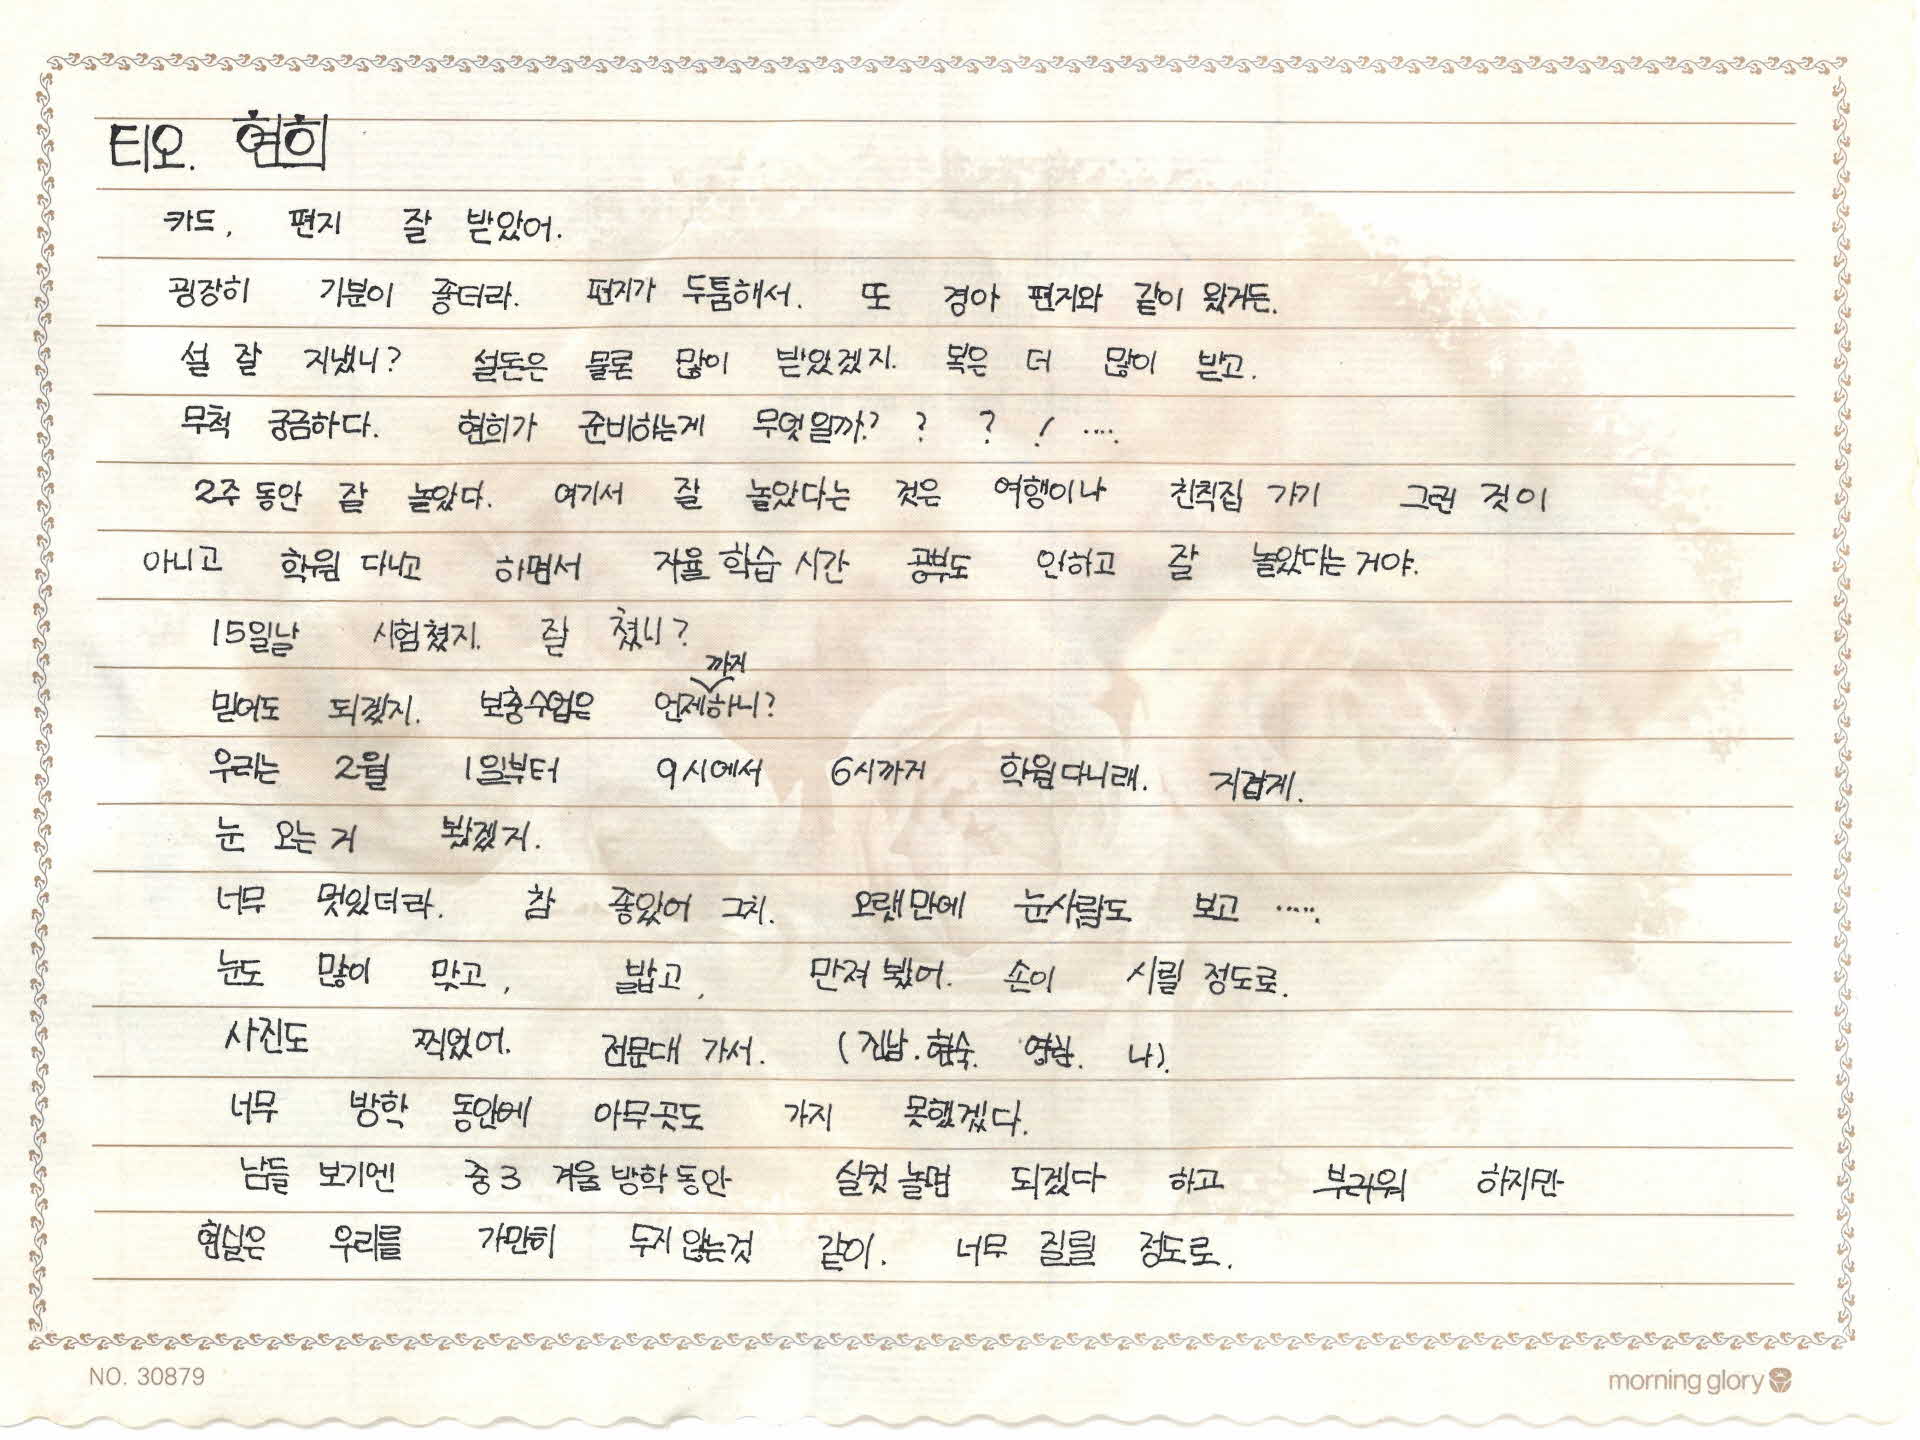 티오. 현희
카드, 편지 잘 받았어.
굉장히 기분이 좋더라. 편지가 두툼해서. 또 경아 편지와 같이 왔거든.
설 잘 지냈니? 설돈은 물론 많이 받았겠지. 복은 더 많이 받고.
무척 궁금하다. 현희가 준비하는게 무엇일까? ? ? ! ....
2주 동안 잘 놀았다. 여기서 잘 놀았다는 것은 여행이나 친척집 가기 그런 것이
아니고 학원 다니고 하면서 자율 학습 시간 공부도 안하고 잘 놀았다는 거야.
15일날 시험쳤지. 잘 쳤니?
믿어도 되겠지. 보충수업은 언제까지하니?
우리는 2월 1일부터 9시에서 6시까지 학원다니래. 지겹게.
눈 오는 거 봤겠지.
너무 멋있더라. 참 좋았어 그치. 오랫만에 눈사람도 보고 .....
눈도 많이 맞고, 밟고, 만져 봤어. 손이 시릴 정도로.
사진도 찍었어. 전문대 가서. (진남. 현숙. 나).
너무 방학 동안에 아무곳도 가지 못했겠다.
남들 보기엔 중3 겨울 방학 동안 실컷 놀면 되겠다 하고 부러워 하지만
현실은 우리를 가만히 두지 않는것 같이. 너무 질릴 정도로.
NO. 30879
morning glory